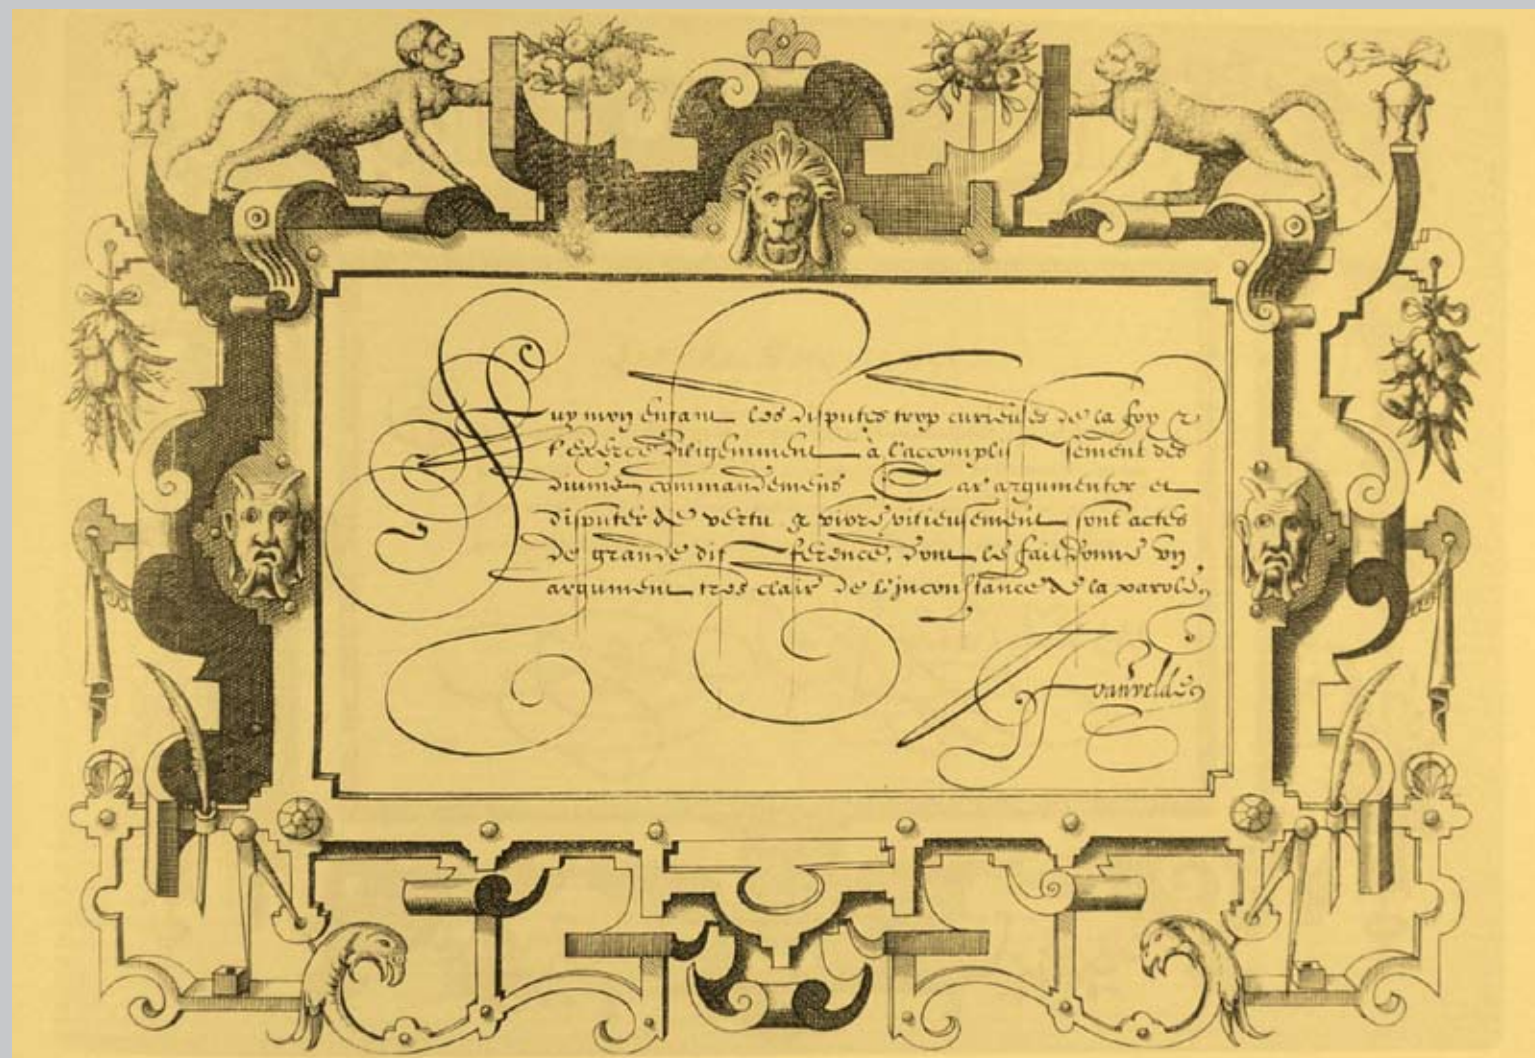 Fuy mon enfant les disputes trop curieuses de la foy &
t'exerce diligemment à l'accomplissement des
divins commandemens Car argumenter et
disputer de vertu & vivre vitieusement sont actes
de grande difference, dont le fait donne un
argument tres clair de l'inconstance de la parole,
vanvelde,